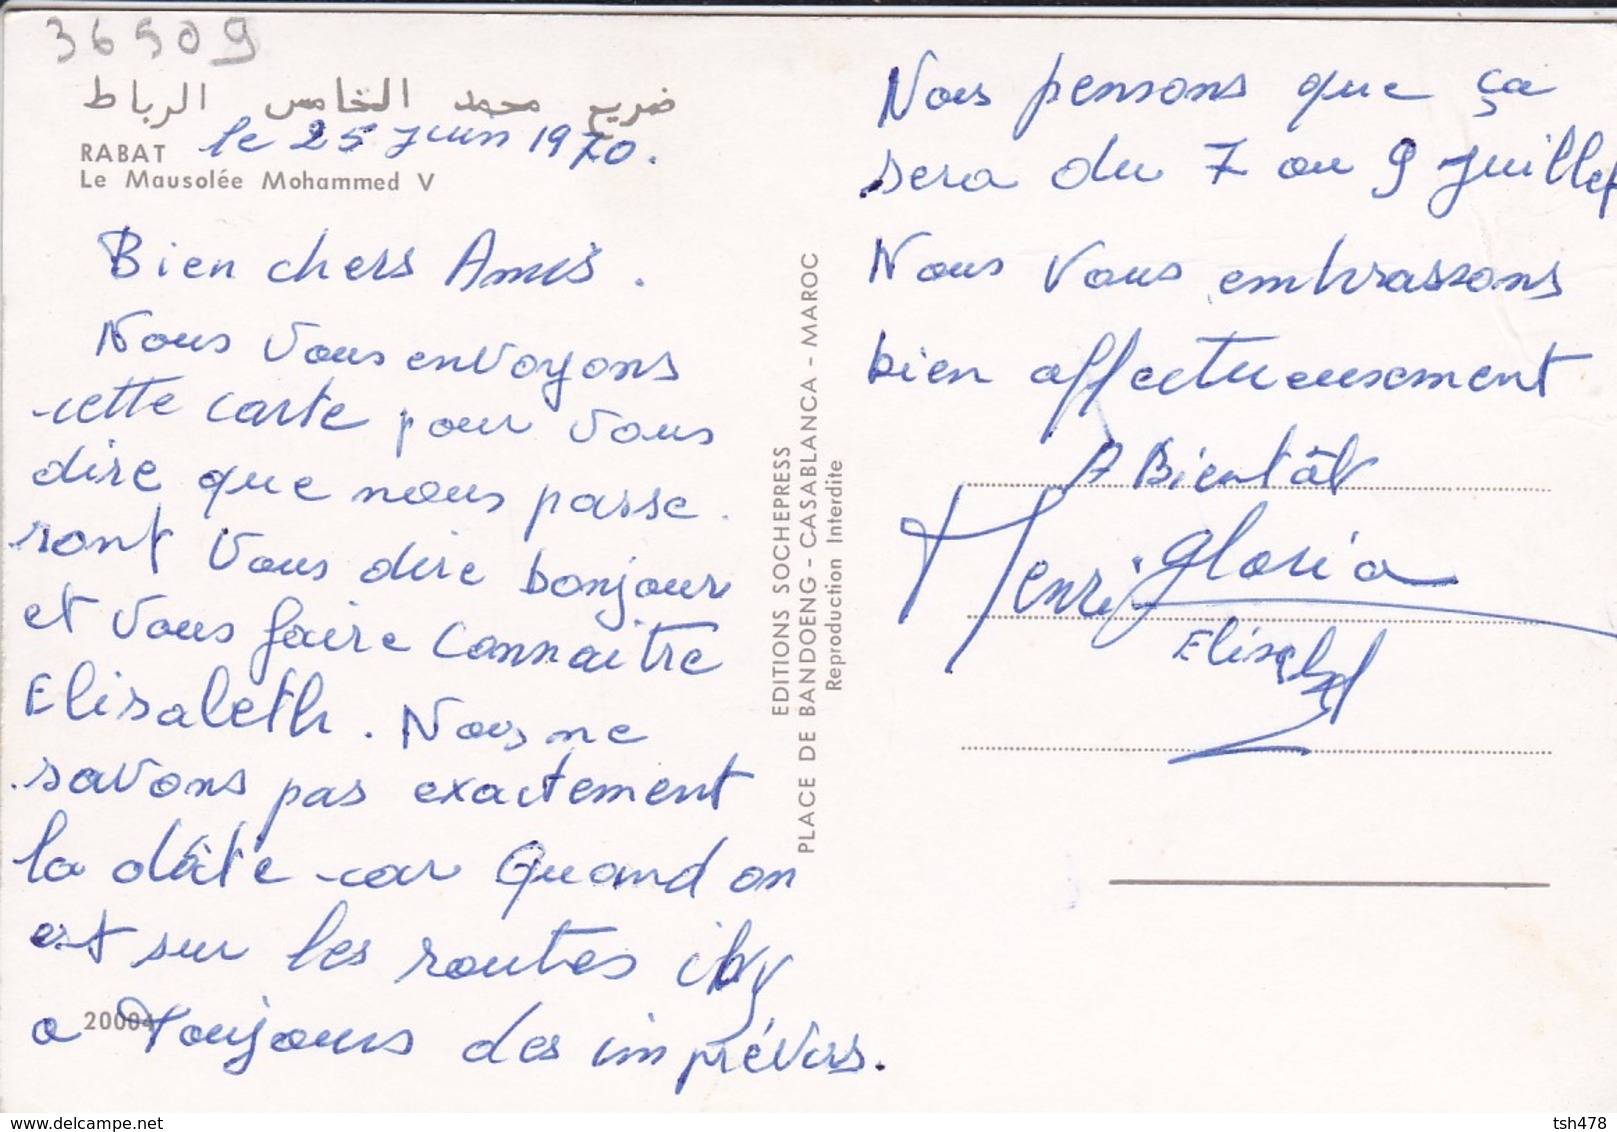 36509
ضريح محمد الخامس الرباط
RABAT
le 25 Juin 1970.
Le Mausolée Mohammed V
Bien chers Amis.
Nous Vous envoyons
cette carte pour Vous
dire que nous passe
ront Vous dire bonjour
et Vous faire Connaitre
Elisabeth. Nous ne
savons pas exactement
la dâte car Quand on
est sur les routes il y
a Toujours des imprévus.
20004
EDITIONS SOCHEPRESS
PLACE DE BANDOENG - CASABLANCA - MAROC
Reproduction Interdite
Nous pensons que ça
sera du 7 au 9 Juillet
Nous Vous embrassons
bien affectueusement
A Bientôt
Henri Gloria
Elisabeth
tsh478